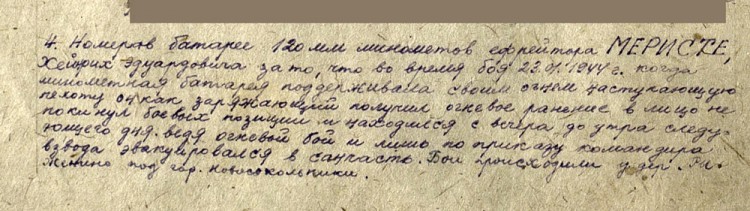 4. Номеров батареи 120 мм минометов ефрейтора МЕРИСТЕ,
Хейдрих Эдуардовича за то, что во время боя 23.01.1944 г. когда
минометная батарея поддерживала своим огнем наступающую
пехоту он как заряжающий получил огневое ранение в лицо не
покинул боевых позиций и находился с вечера до утра следу-
ющего дня ведя огневый бой и лишь по приказу командира
взвода эвакуировался в санчасть. Бои происходили у дер.
под гор. Новосокольники.